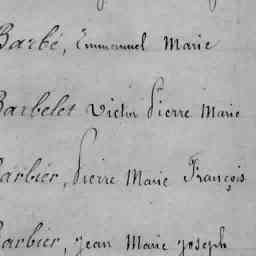 Barbé, Emmanuel Marie
Barbelet Victor Pierre Marie
Barbier, Pierre Marie François
Barbier, Jean Marie Joseph